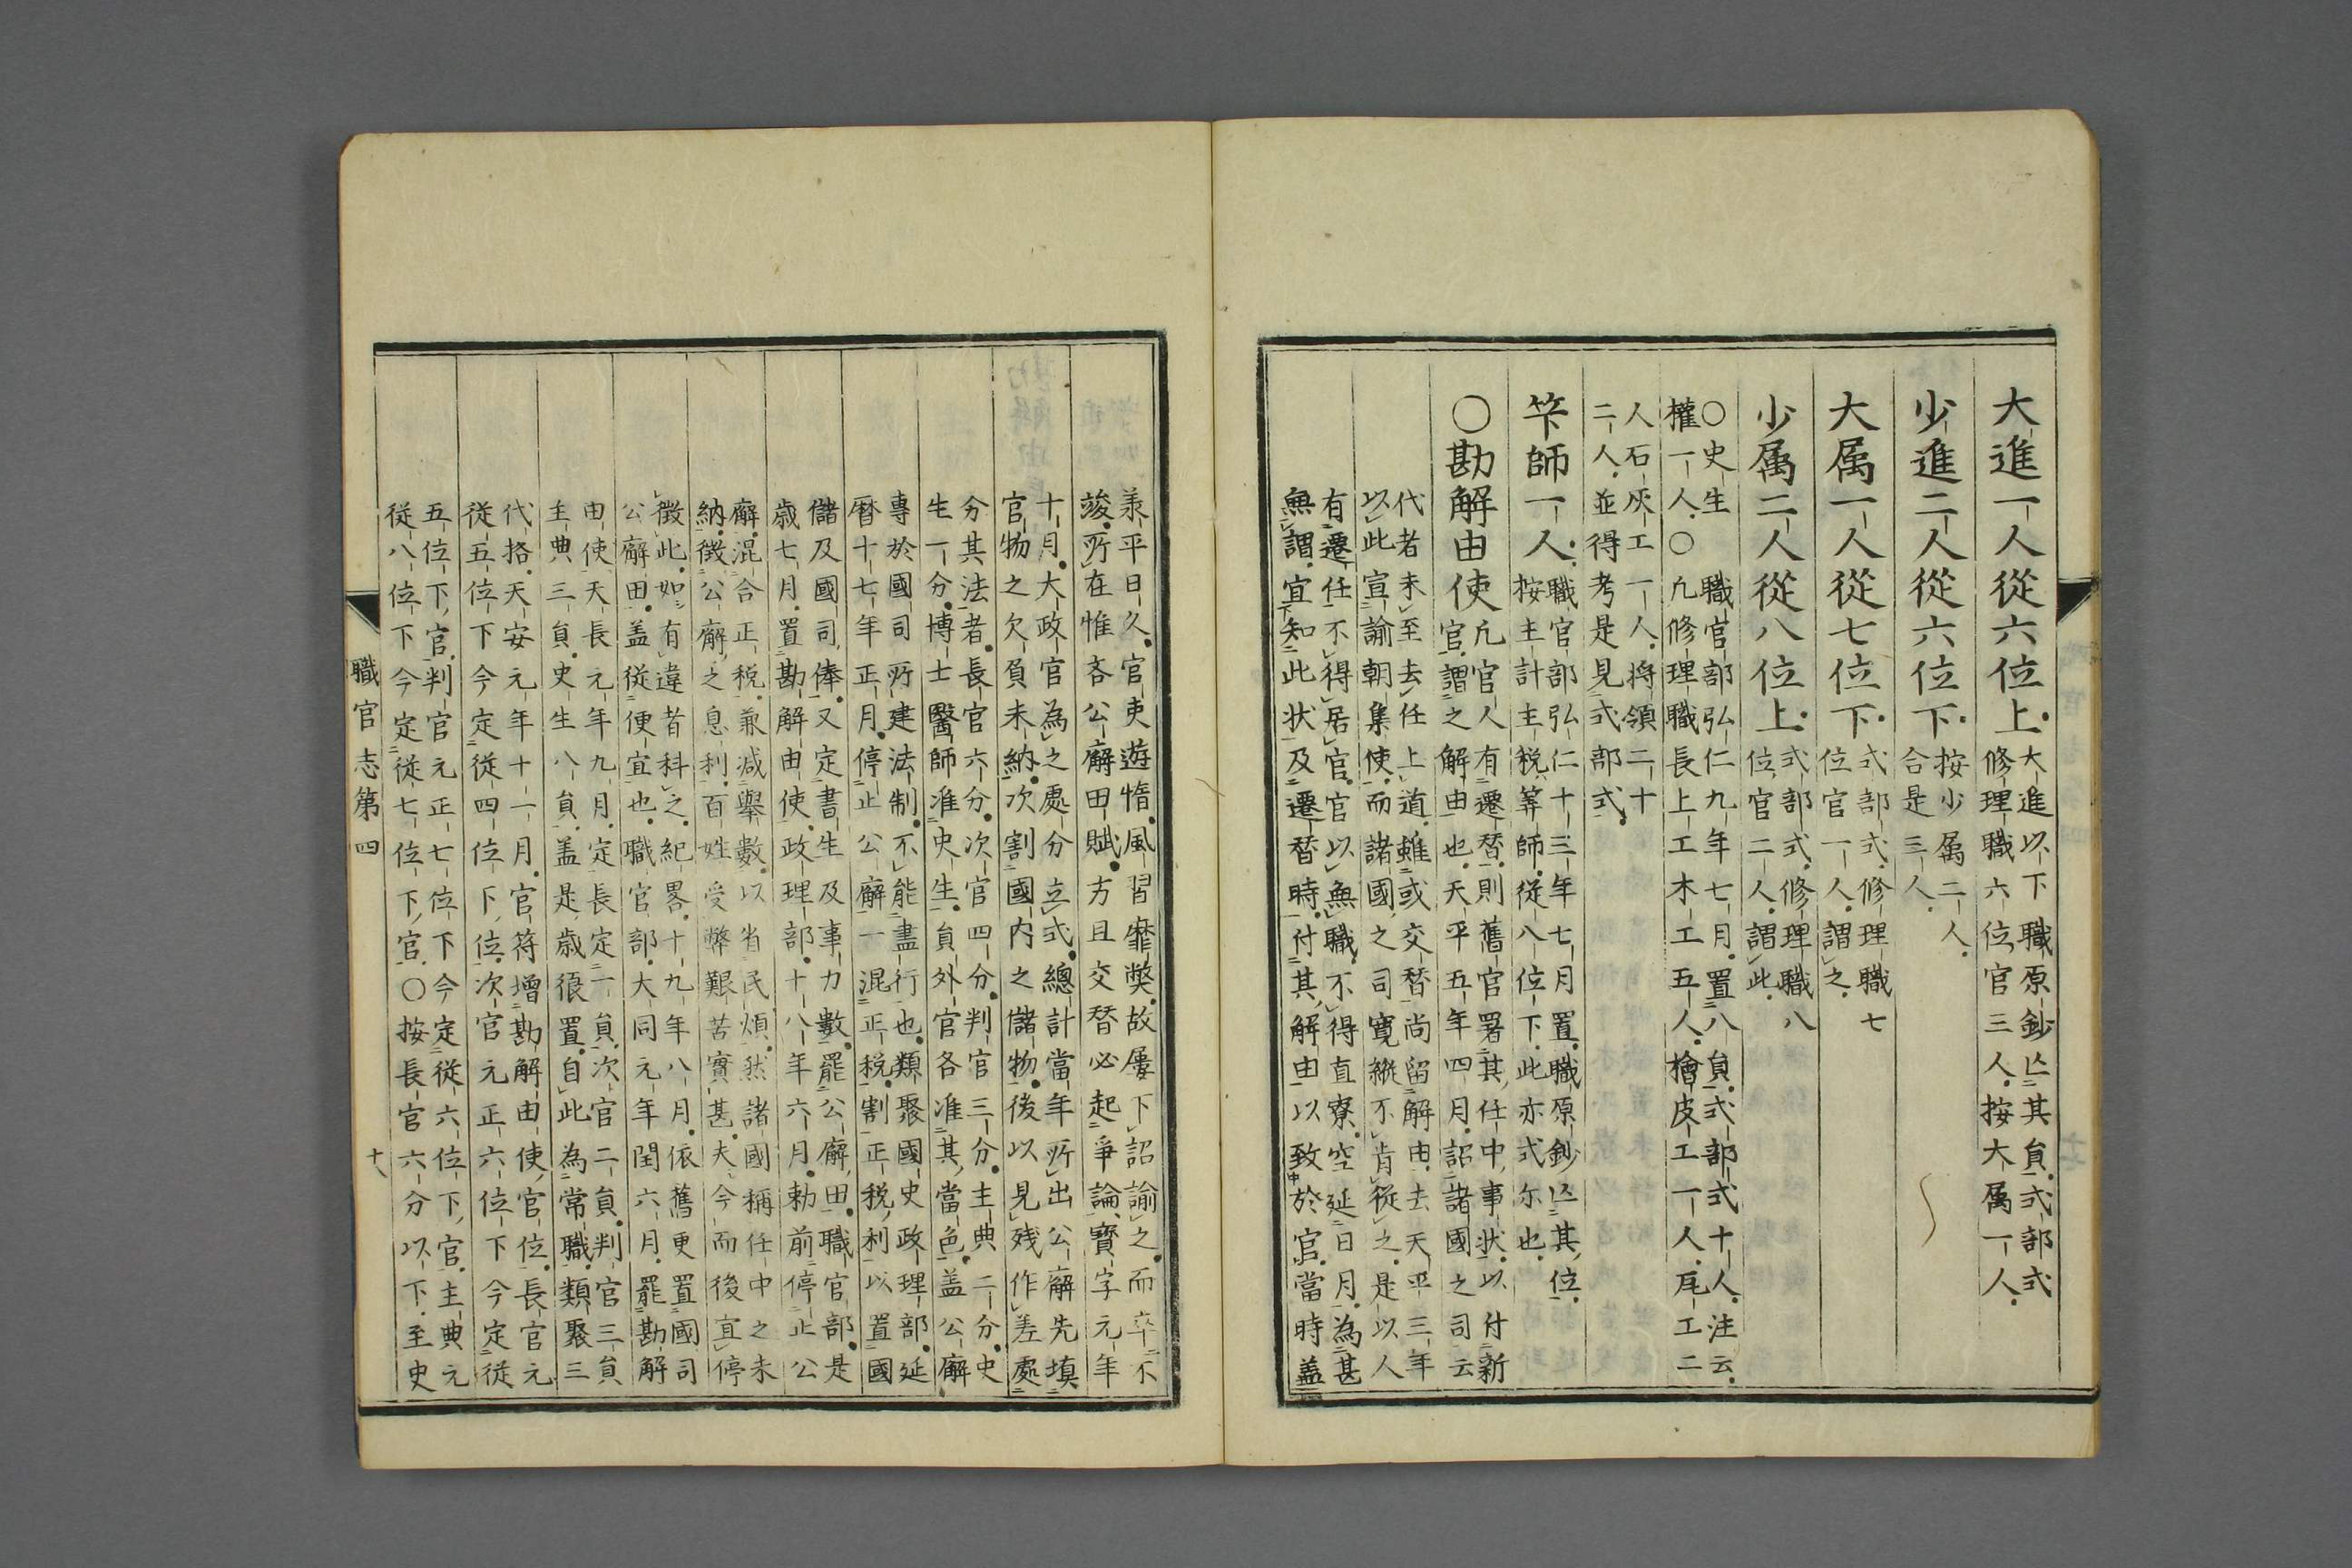 大進一人從六位上大進以下職原鈔亡其員式部式
修理職六位官三人按大属一人
少進二人從六位下按少属二人
合是三人
大属一人從七位下式部式修理職七
位官一人謂之
少属二人從八位上式部式修理職八
位官二人謂此
〇史生職官部弘仁九年七月置八員式部式十人注云
權一人〇凡修理職長上工木工五人檜皮工一人瓦工二
人石灰工一人将領二十
二人並得考是見式部式
筭師一人職官部弘仁十三年七月置職原鈔亡其位
按主計主税筭師從八位下此亦式尓也
〇勘解由使凡官人有遷替則舊官署其任中事状以付新
官謂之解由也天平五年四月詔諸國之司云
代者未至去任上道雖或交替尚留解由去天平三年
以此宣諭朝集使而諸國之司寛縱不肯從之是以人
有遷任不得居官官以無職不得直寮空延日月為甚
無謂宜知此状及遷替時付其解由以致於官當時盖
羕平日久官吏遊惰風習靡獘故屢下詔諭之而卒不
竣所在惟吝公廨田賦方且交替必起爭論寳字元年
十月大政官為之處分立式總計當年所出公廨先填
官物之欠負未納次割國内之儲物後以見残作差處
分其法者長官六分次官四分判官三分主典二分史
生一分博士醫師准史生員外官各准其當色盖公廨
専於國司所建法制不能盡行也類聚國史政理部延
暦十七年正月停止公廨一混正税割正税利以置國
儲及國司俸又定書生及事力數罷公廨田職官部是
歳七月置勘解由使政理部十八年六月勅前停止公
廨混合正税兼減擧數以省民煩然諸國稱任中之未
納徴公廨之息利百姓受弊艱苦實甚夫今而後宜停
徴此如有違者科之紀畧十九年八月依舊更置國司
公廨田盖從便宜也職官部大同元年閏六月罷勘解
由使天長元年九月定長定一員次官二員判官三員
主典三員史生八員盖是歳復置自此為常職類聚三
代格天安元年十一月官符增勘解由使官位長官元
從五位下今定從四位下位次官元正六位下今定從
五位下官判官元正七位下今定從六位下官主典元
從八位下今定從七位下官〇按長官六分以下至史
職官志第四
十八